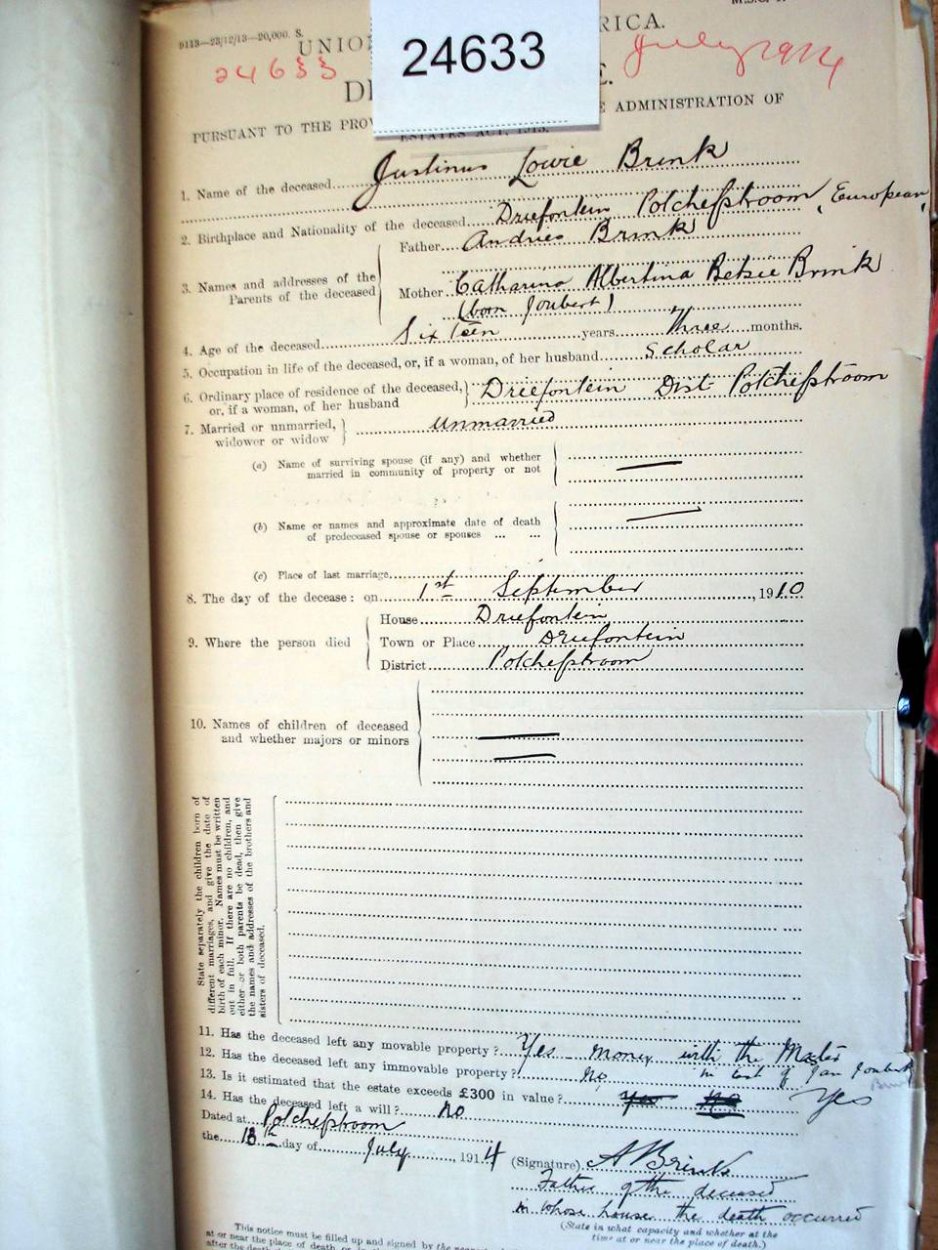 9113—23/12/13—20,000. S.
UNION RICA.
24633
24633
July 1914
DE E.
PURSUANT TO THE PROV E ADMINISTRATION OF
ESTATES ACT, 1913.
1. Name of the deceased Justinus Lowie Brink
2. Birthplace and Nationality of the deceased Driefontein Potchefstroom, European,
3. Names and addresses of the Parents of the deceased
Father Andries Brink
Mother Catharina Albertina Betsie Brink
(born Joubert)
4. Age of the deceased Sixteen years Three months.
5. Occupation in life of the deceased, or, if a woman, of her husband Scholar
6. Ordinary place of residence of the deceased, or, if a woman, of her husband Driefontein Dist Potchefstroom
7. Married or unmarried, widower or widow unmarried
(a) Name of surviving spouse (if any) and whether
married in community of property or not
(b) Name or names and approximate date of death
of predeceased spouse or spouses ... ...
(c) Place of last marriage
8. The day of the decease: on 1st September, 1910
9. Where the person died
House Driefontein
Town or Place Driefontein
District Potchefstroom
10. Names of children of deceased
and whether majors or minors
State separately the children born of
different marriages, and give the date of
birth of each minor. Names must be written
out in full. If there are no children, and
either or both parents be dead, then give
the names and addresses of the brothers and
sisters of deceased.
11. Has the deceased left any movable property? Yes - money with the Master
12. Has the deceased left any immovable property? No in est of Jan Joubert
13. Is it estimated that the estate exceeds £300 in value? Yes No Yes
14. Has the deceased left a will? No
Dated at Potchefstroom
the 18th day of July, 1914
(Signature) A Brink
Father of the deceased
in whose house the death occurred
(State in what capacity and whether at the
time at or near the place of death.)
This notice must be filled up and signed by the
at or near the place of death
after the death